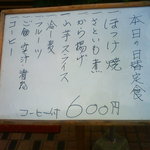 本日の日替定食
一ほっけ焼
一さといも煮
一から揚げ
一山芋スライス
一冷奴
一フルーツ
一ご飯 味噌汁 香物
一コーヒー
コーヒー付 600円